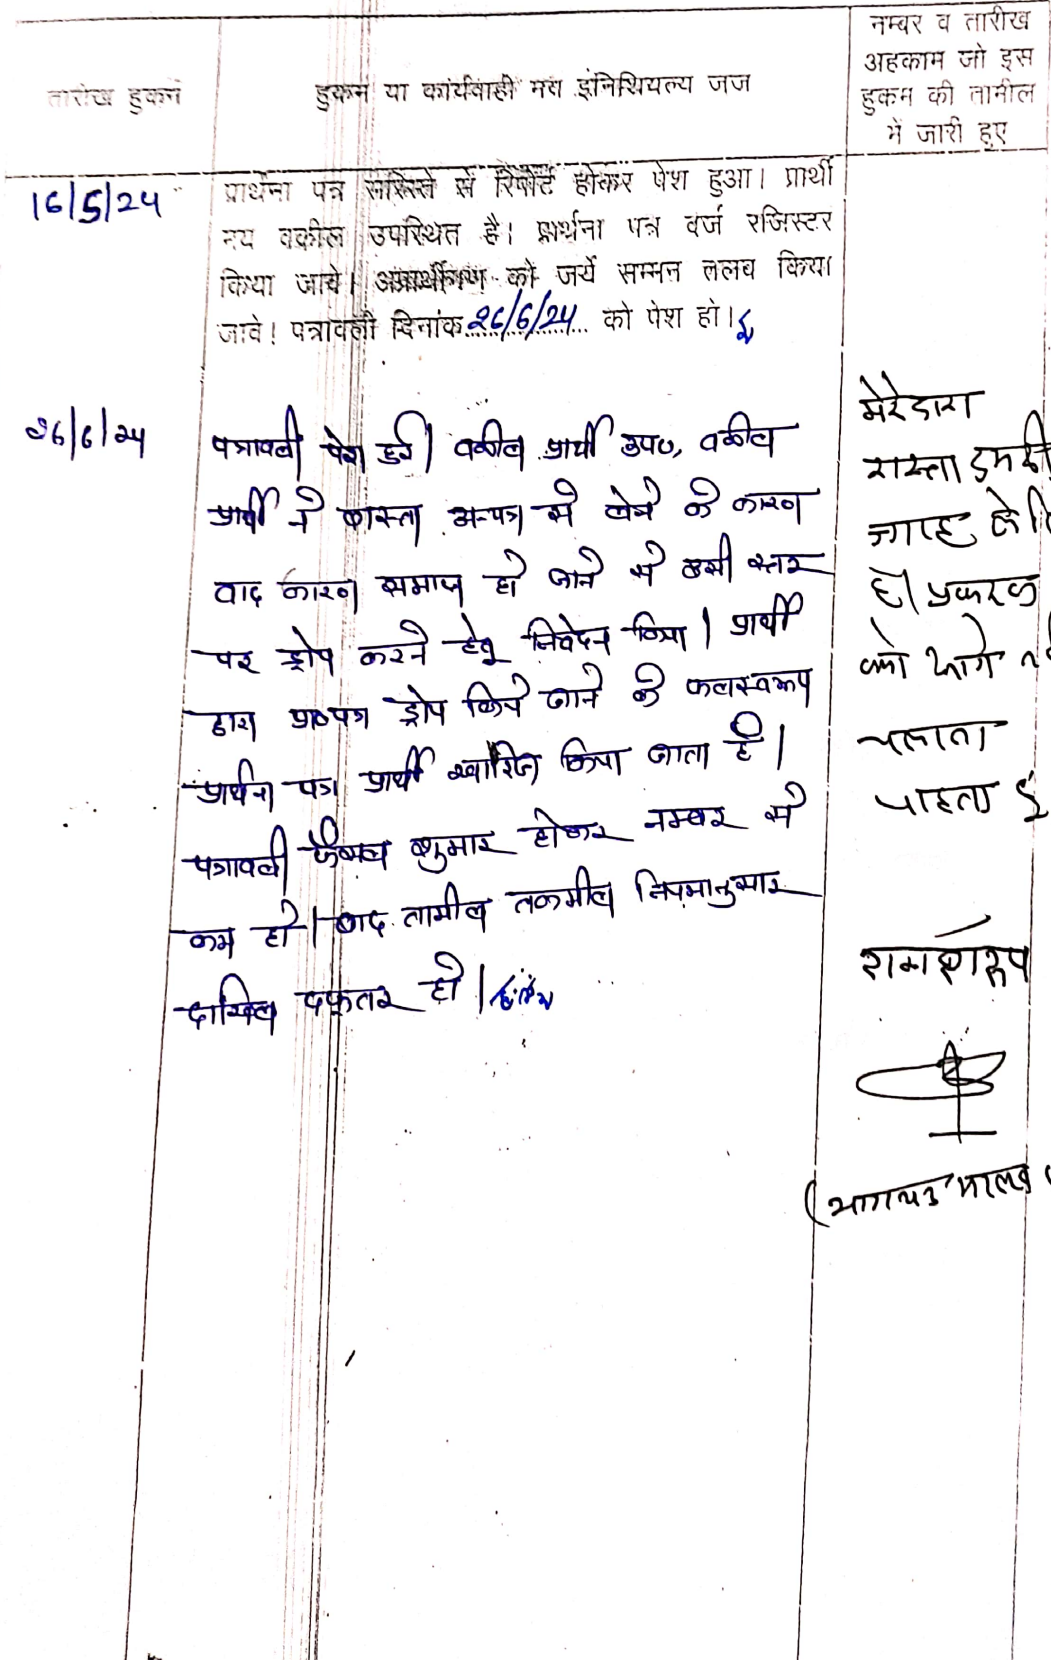 तारीख हुकम
हुकम या कार्यवाही मय इंनिशियल्य जज
नम्बर व तारीख
अहकाम जो इस
हुकम की तामील
में जारी हुए
16/5/24
प्रार्थना पत्र सरिस्ते से रिपोर्ट होकर पेश हुआ। प्रार्थी
मय वकील उपस्थित है। प्रार्थना पत्र दर्ज रजिस्टर
किया जावे। अप्रार्थीगण को जर्ये सम्मन तलब किया
जावे! पत्रावली दिनांक 26/6/24 को पेश हो।
26/6/24
पत्रावली पेश हुई। वकील प्रार्थी उप०, वकील
प्रार्थी ने रास्ता अन्यत्र से लेने के कारण
वाद कारण समाप्त हो जाने से इसी स्तर
पर ड्रोप करने हेतु निवेदन किया। प्रार्थी
द्वारा प्रा०पत्र ड्रोप किये जाने के फलस्वरूप
प्रार्थना पत्र प्रार्थी खारिज किया जाता है।
पत्रावली फैसल शुमार होकर नम्बर से
कम हो। बाद तामील तकमील नियमानुसार
दाखिल दफ्तर हो।
मेरे द्वारा
रास्ता
जगह ले
है। प्रकरण
को आगे
चलाना
चाहता